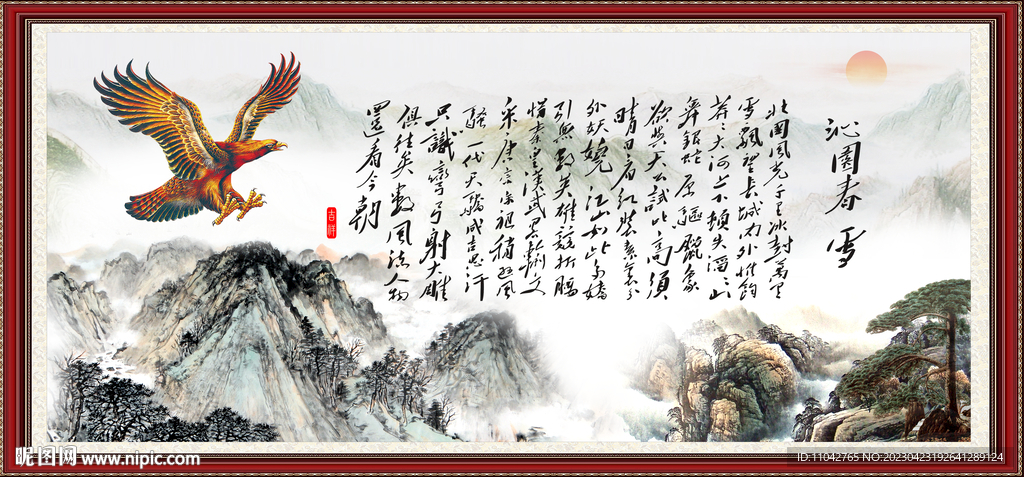 沁園春 雪
北國風光千里冰封萬里
雪飄望長城内外惟餘
莽莽大河上下頓失滔滔山
舞銀蛇原驅臘象
欲與天公試比高須
晴日看红裝素裹分
外妖嬈江山如此多嬌
引無數英雄競折腰
惜秦皇漢武畧輸文
采唐宗宋祖稍遜風
騷一代天驕成吉思汗
只識彎弓射大雕
俱往矣數風流人物
還看今朝
吉祥
昵图网 www.nipic.com
ID:11042765 NO:20230423192641289124